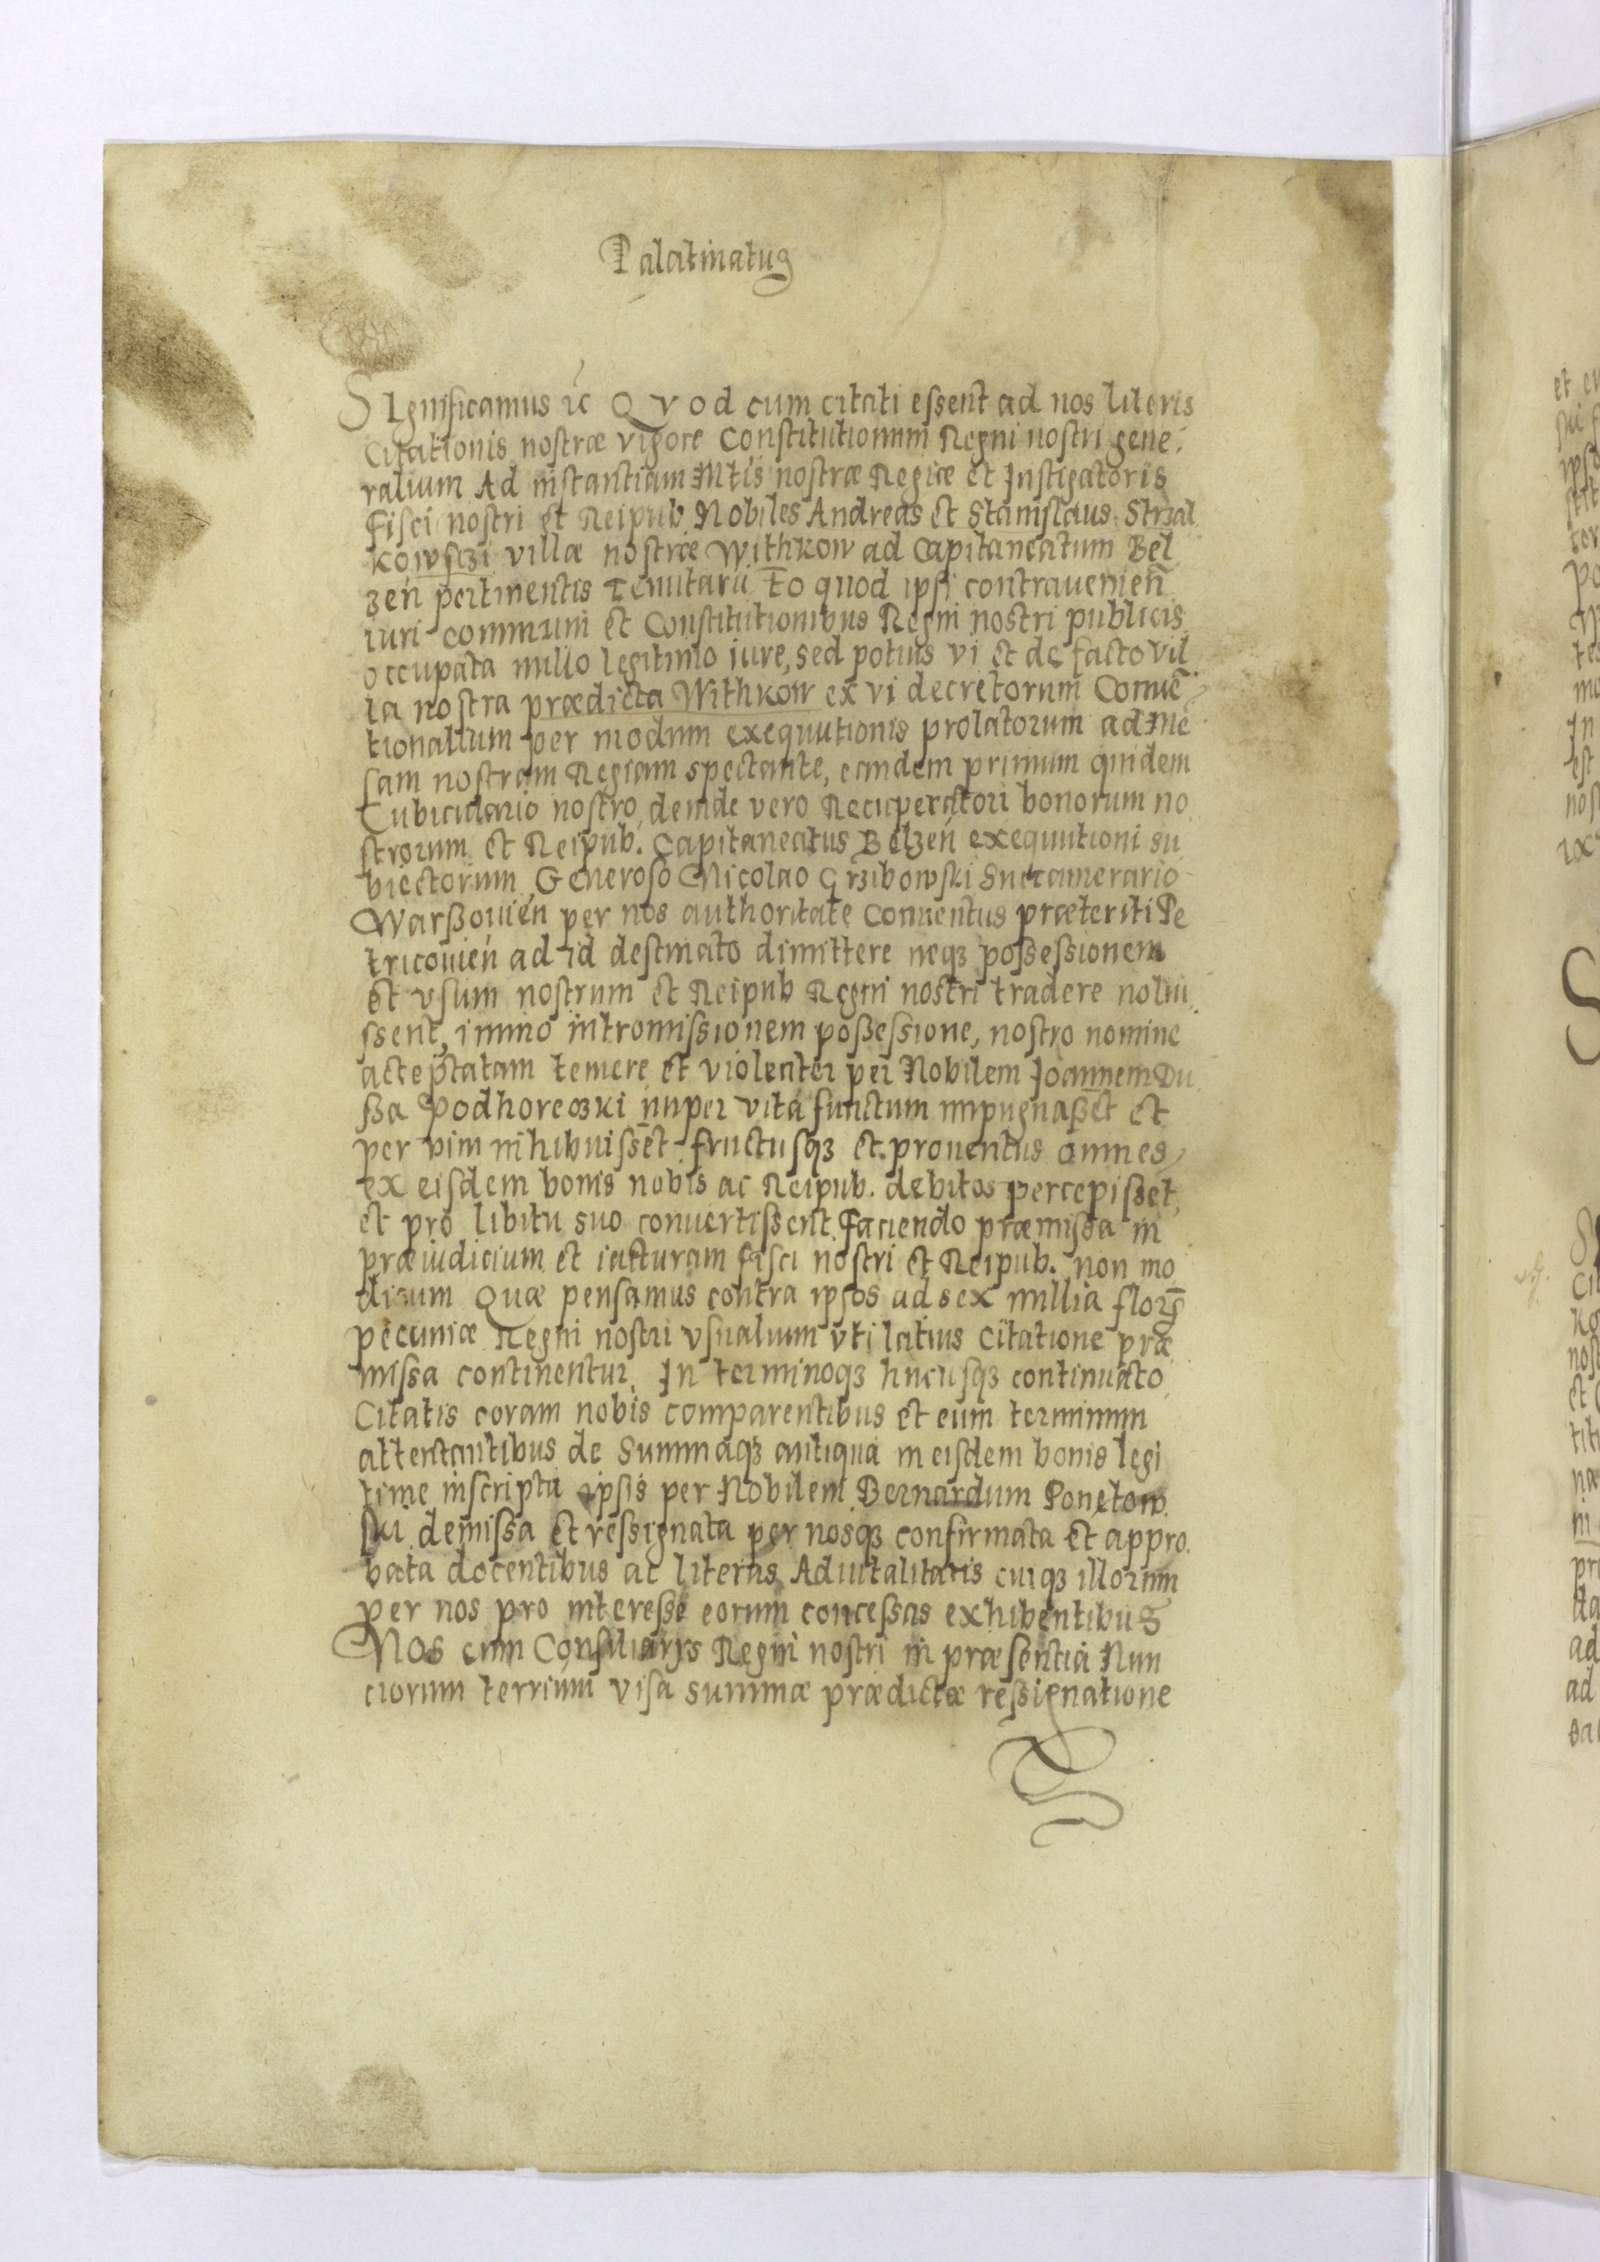 Palatinatus
SIgnificamus ꝛc QVod cum citati essent ad nos literis
Citationis nostræ vigore Constitutionum Regni nostri gene.
ralium Ad instantiam Mtis nostræ Regiæ et Instigatoris
Fisci nostri et Reipub. Nobiles Andreas et Stanislaus Strzal
kowsczi villæ nostræ Withkow ad Capitaneatum Bel
zeń pertinentis Tenutarii Eo quod ipsi contravenień
iuri communi et Constitutionibus Regni nostri publicis
occupata nullo legitimo iure, sed potius vi et de facto vil
la nostra prædicta Withkow ex vi decretorum Conuē
tionalium per modum exequutionis prolatorum ad mē
sam nostram Regiam spectante, eandem primum quidem
Cubiculario nostro, deinde vero Recuperatori bonorum no
strorum et Reipub. Capitaneatus Belzeń exequutioni su
biectorum, Generoso Nicolao Grzibowski Succamerario
Warßouień per nos authoritate Conuentus præteriti Pe
tricouień ad id destinato dimittere neqꝫ poßessionem
et vsum nostrum et Reipub Regni nostri tradere nolui
ssent, immo intromissionem poßessione, nostro nomine
acteptatam temere et violenter per Nobilem Joannem Du
ßa Podhoreczki nuper vita functum impugnaßet et
per vim inhibuisset fructusqꝫ et prouentus omnes
ex eisdem bonis nobis ac Reipub. debitos percepißet,
et pro libitu suo conuertißent. Faciendo præmissa in
præiudicium et iacturam fisci nostri et Reipub. non mo
dicum Quæ pensamus contra ipsos ad sex millia flor̃
pecuniæ Regni nostri vsualium vti latius Citatione præ
missa continentur. In terminoqꝫ hucusqꝫ continuato
Citatis coram nobis comparentibus et eum terminum
attentantibus de Summaqꝫ antiqua in eisdem bonis legi
time inscripta ipsis per Nobilem Bernardum Ponetow
ski demissa et ressignata per nosqꝫ confirmata et appro.
bata docentibus ac literas Aduitalitatis cuiqꝫ illorum
per nos pro interesse eorum concessas exhibentibus
Nos cum Consiliarijs Regni nostri in præsentia Nun
ciorum terrium visa summæ prædictæ reßignatione